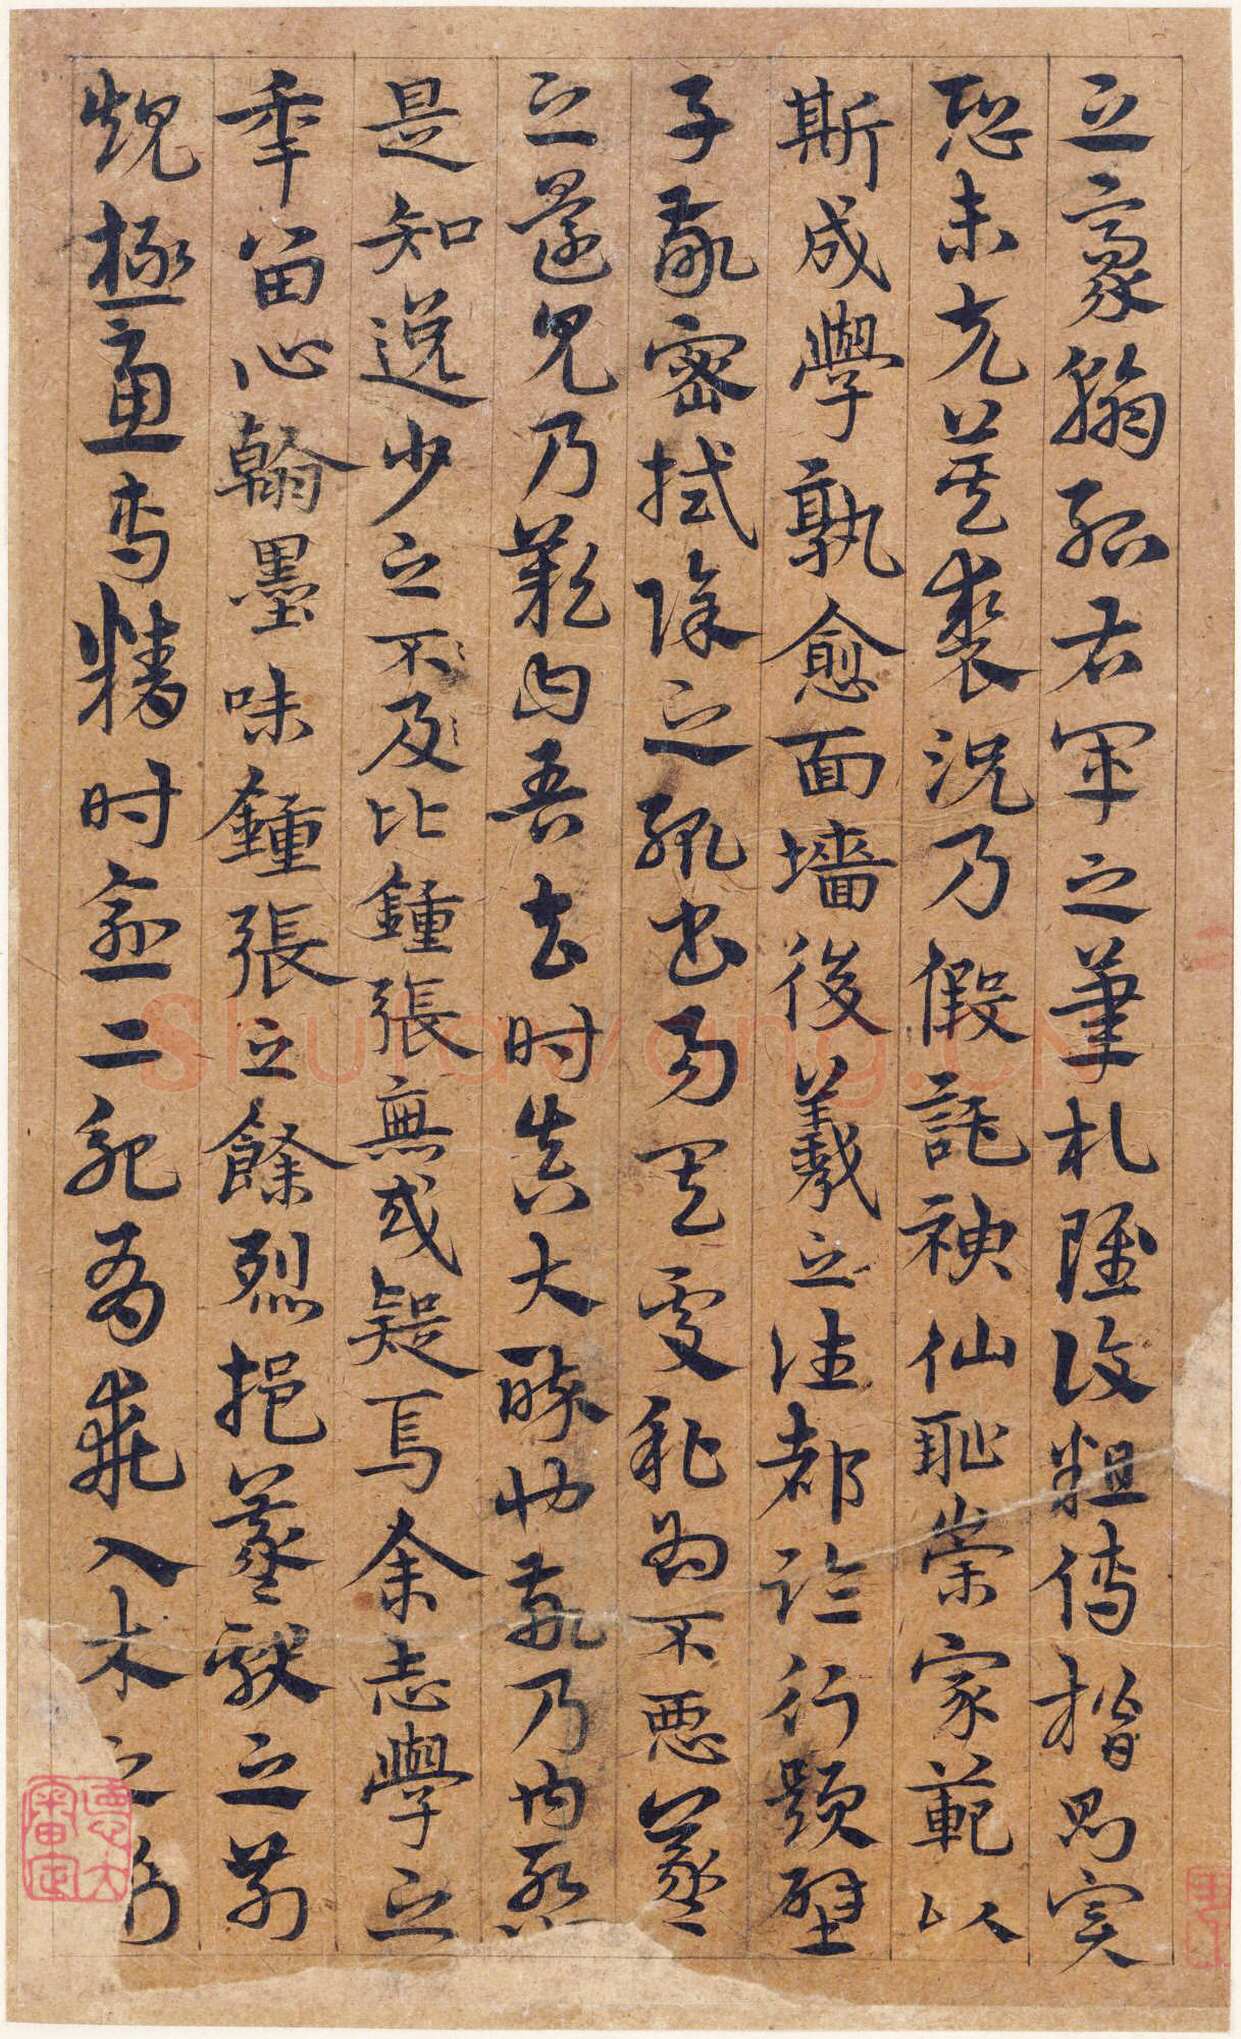 之豪翰紹右軍之筆札雖復粗傳楷則實
恐未克箕裘況乃假託神仙恥崇家範以
斯成學孰愈面墻後羲之往都臨行題壁
子敬密拭除之輒書易其處私為不惡羲
之還見乃歎曰吾去時真大醉也敬乃內慙
是知逸少之不及比鍾張無或疑焉余志學之
年留心翰墨味鍾張之餘烈挹羲獻之前
規極慮專精時逾二紀有乖入木之術
Shufawang.CN